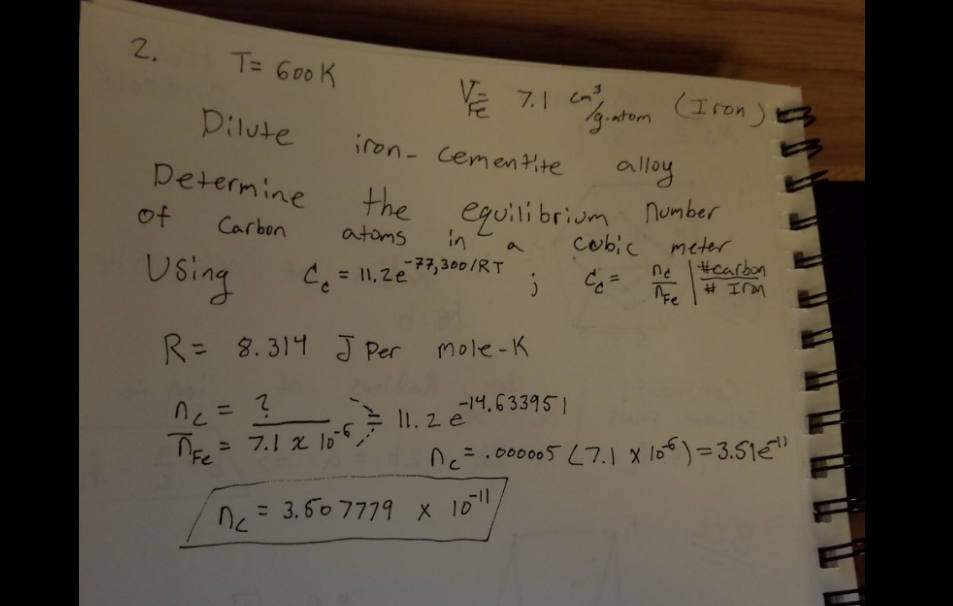 2.
T= 600K
V= 7.1 cm³/g.atom (Iron)
Fe
Dilute iron-cementite alloy
Determine the equilibrium number
of Carbon atoms in a cubic meter
Using Cc = 11.2e^-77,300/RT ; Cc = nc/nFe | #carbon/# Iron
R= 8.314 J Per mole-K
nc/nFe = ?/7.1 x 10^-6 = 11.2 e^-14.633951
nc = .000005 (7.1 x 10^-6) = 3.51e^-11
nc = 3.507779 x 10^-11